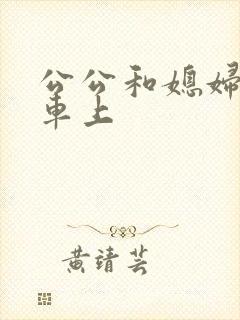 公公和媳婦
車上
黄靖芸